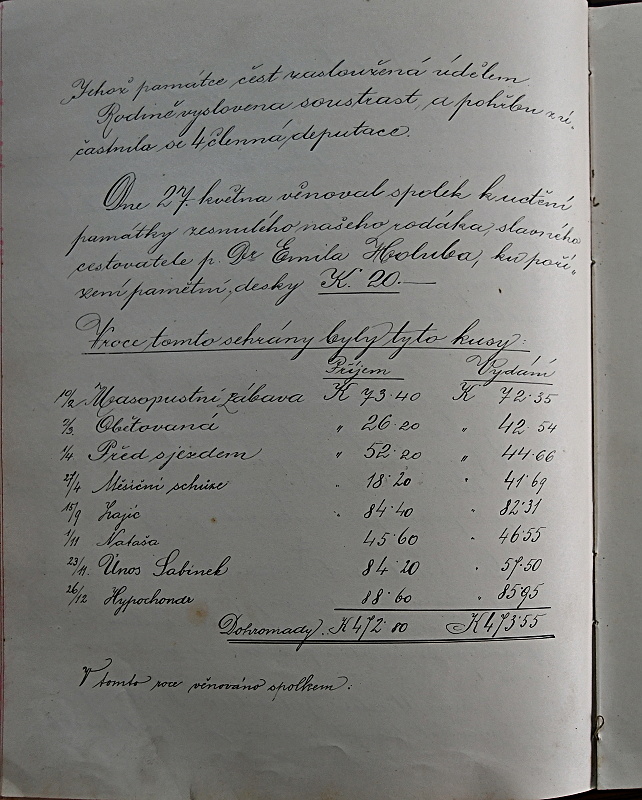 Jehož památce čest zasloužená údělem.
Rodině vyslovena soustrast, a pohřbu zú-
častnila se 4členná deputace.
Dne 27. května věnoval spolek k uctění
památky zesnulého našeho rodáka, slavného
cestovatele p. Dr Emila Holuba, ku poří-
zení pamětní desky K. 20.—
V roce tomto sehrány byly tyto kusy:
Příjem Vydání
10/2 Masopustní zábava K 73·40 K 72·35
2/3. Obětovaná " 26·20 " 42·54
1/4. Před sjezdem " 52·20 " 44·66
27/4 Měsíční schůze " 18·20 " 41·69
15/9 Zajíc " 84·40 " 82·31
1/11 Nataša 45·60 " 46·55
23/11. Únos Sabinek 84·20 " 57·50
26/12 Hypochondr 88·60 " 85·95
Dohromady. K 472·80 K 473·55
V tomto roce věnováno spolkem: